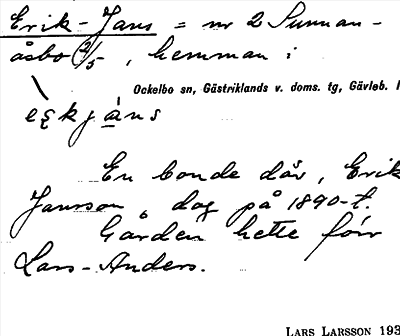 Erik-Jans = nr 2 Sunnan-
åsbo 2/5, hemman i
Ockelbo sn, Gästriklands v. doms. tg, Gävleb. l
En bonde där, Erik
Jansson, dog på 1890-t.
Gården hette förr
Lars-Anders.
LARS LARSSON 193